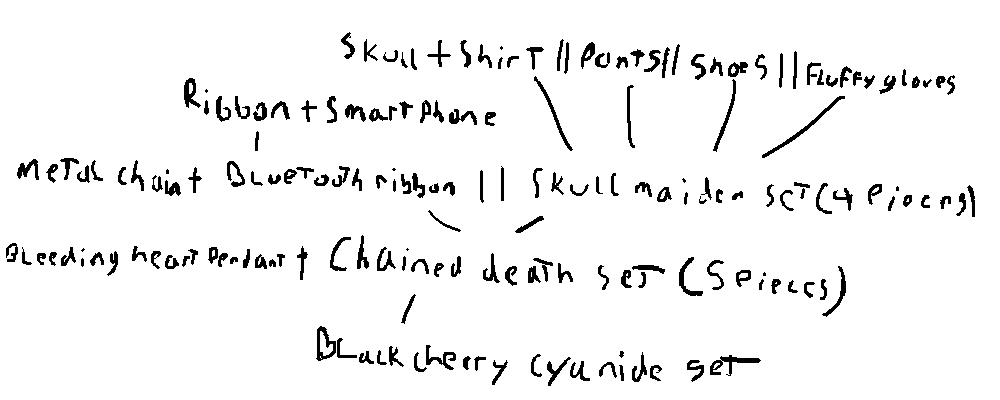 Skull + Shirt || Pants || Shoes || Fluffy gloves
Ribbon + Smart Phone
Metal chain + Bluetooth ribbon || Skull maiden set (4 Pieces)
Bleeding heart Pendant + Chained death set (5 pieces)
Black cherry cyanide set